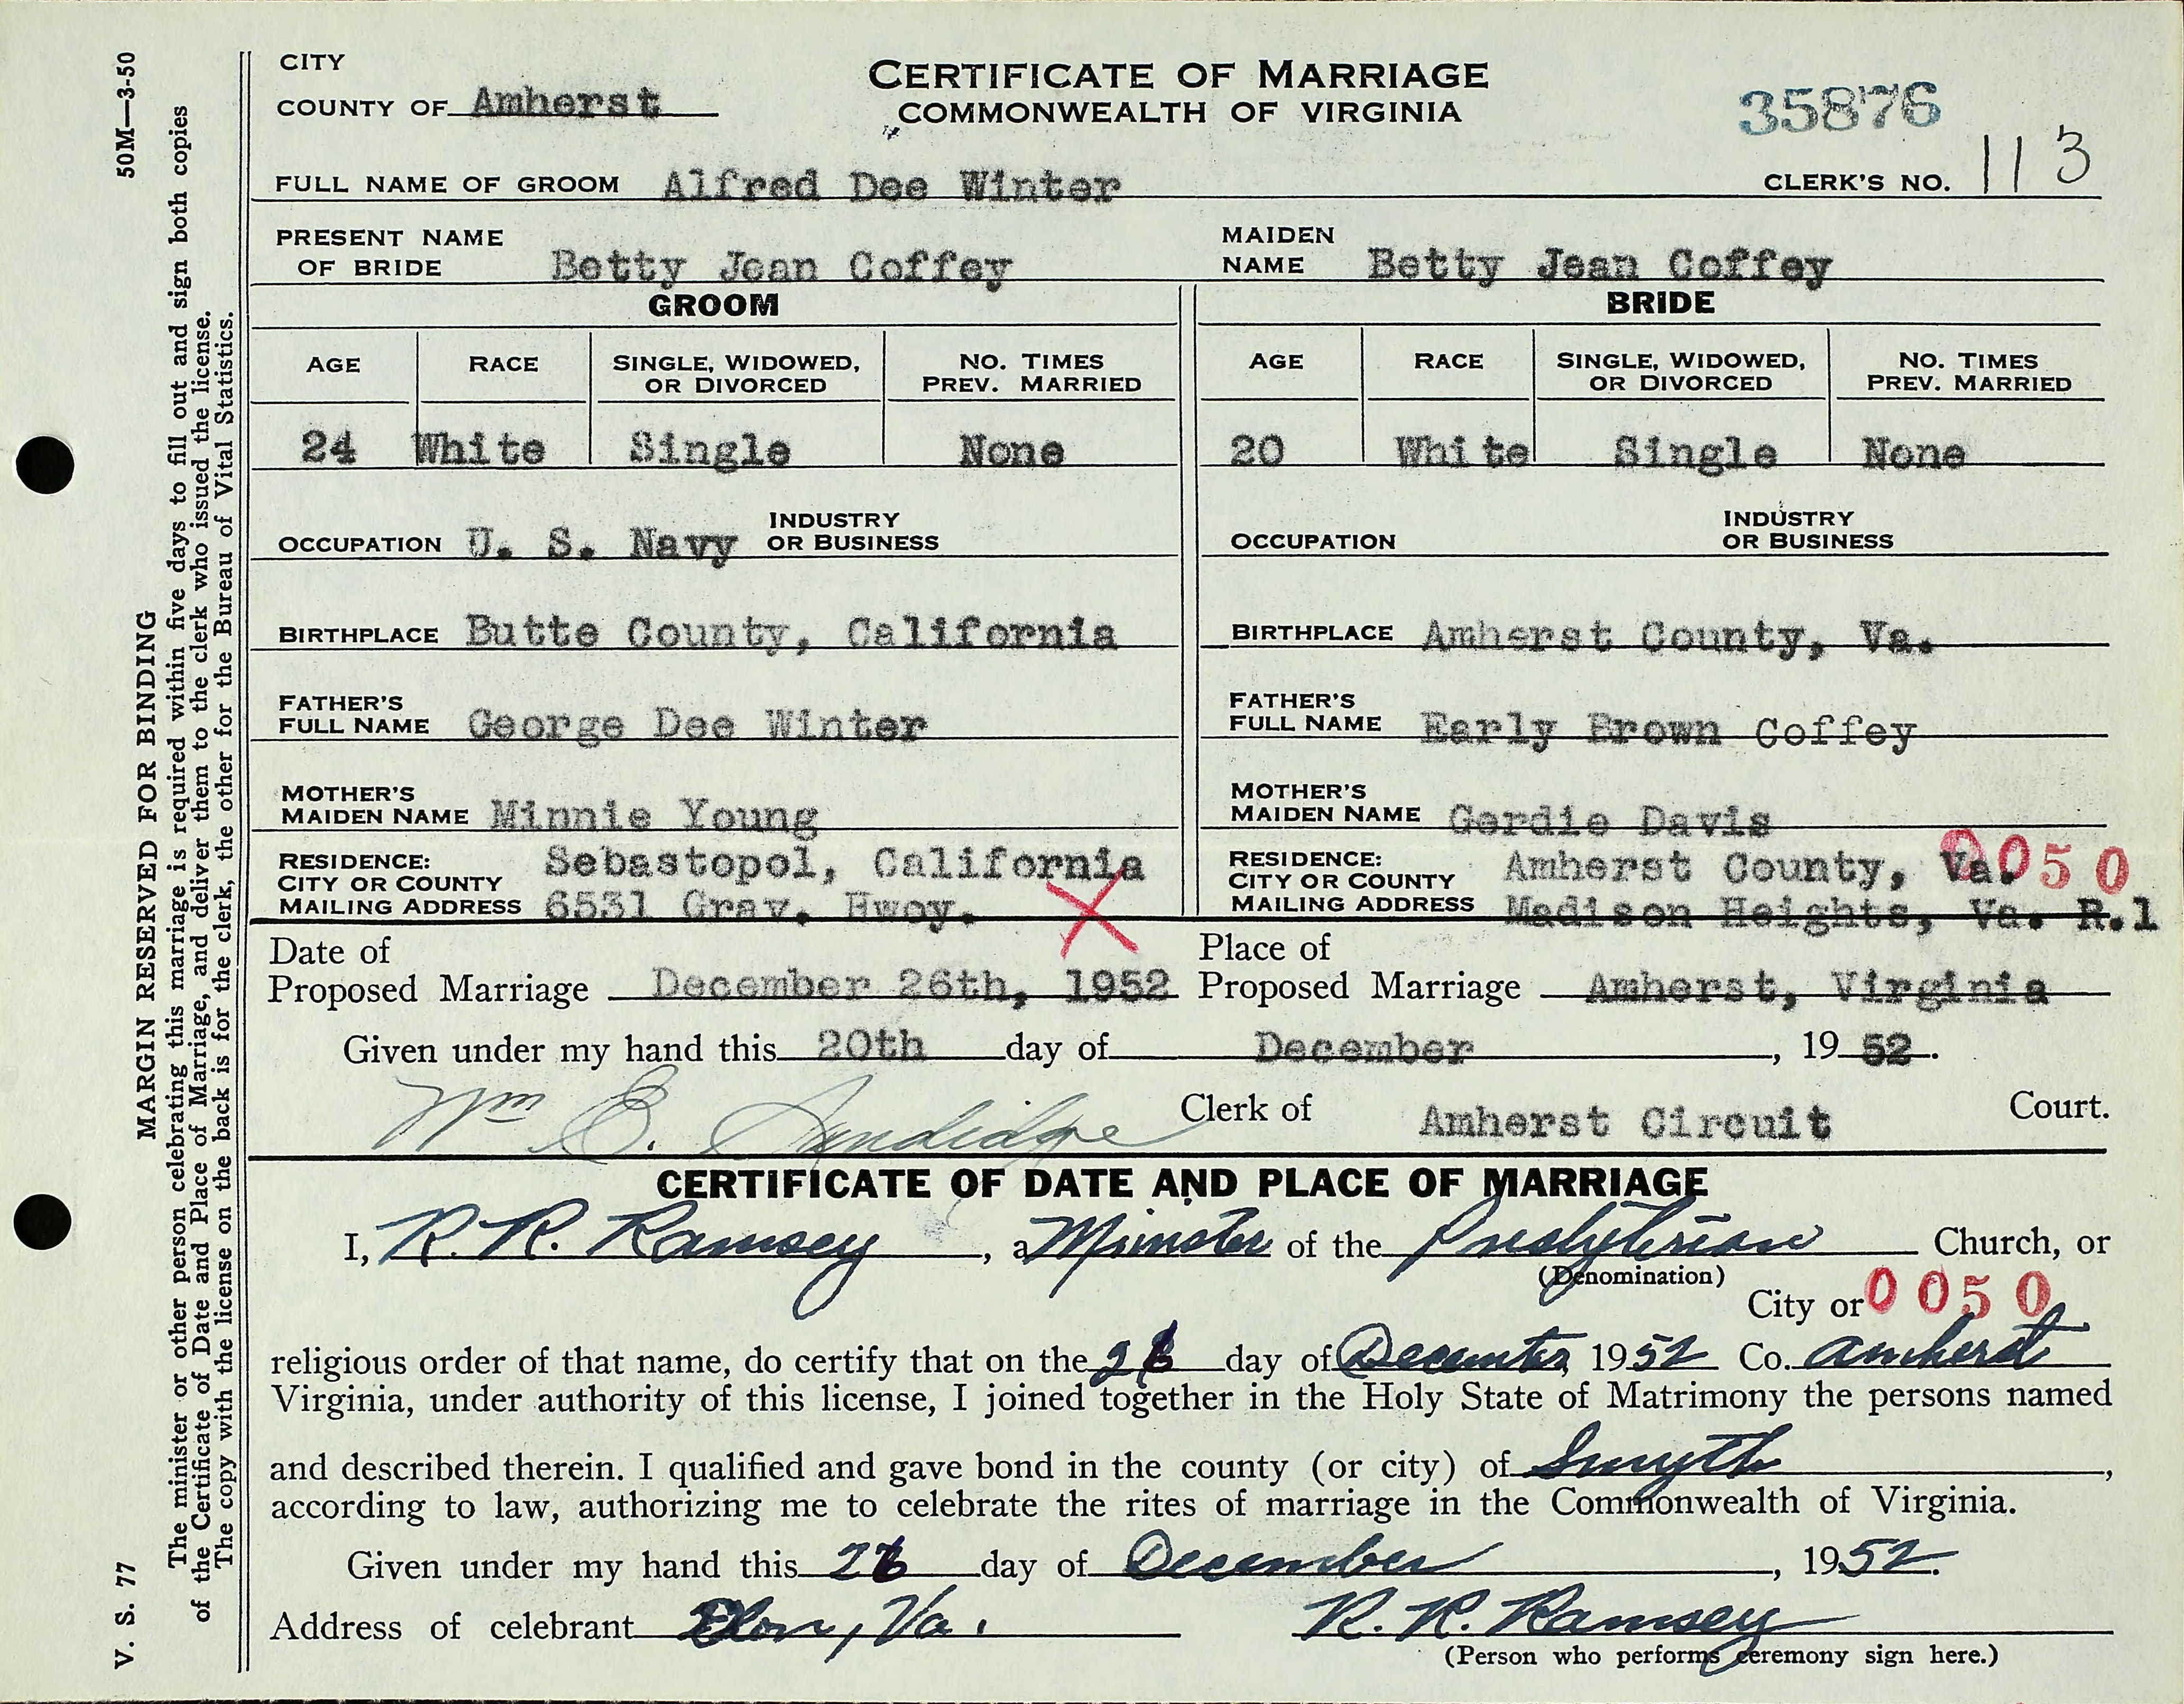 50M—3-50
MARGIN RESERVED FOR BINDING
The minister or other person celebrating this marriage is required within five days to fill out and sign both copies
of the Certificate of Date and Place of Marriage, and deliver them to the clerk who issued the license.
The copy with the license on the back is for the clerk, the other for the Bureau of Vital Statistics.
V. S. 77
CITY
COUNTY OF Amherst
CERTIFICATE OF MARRIAGE
COMMONWEALTH OF VIRGINIA
35876
FULL NAME OF GROOM Alfred Dee Winter CLERK'S NO. 113
PRESENT NAME OF BRIDE Betty Jean Coffey MAIDEN NAME Betty Jean Coffey
GROOM BRIDE
AGE RACE SINGLE, WIDOWED, OR DIVORCED NO. TIMES PREV. MARRIED AGE RACE SINGLE, WIDOWED, OR DIVORCED NO. TIMES PREV. MARRIED
24 White Single None 20 White Single None
OCCUPATION U. S. Navy INDUSTRY OR BUSINESS OCCUPATION INDUSTRY OR BUSINESS
BIRTHPLACE Butte County, California BIRTHPLACE Amherst County, Va.
FATHER'S FULL NAME George Dee Winter FATHER'S FULL NAME Early Brown Coffey
MOTHER'S MAIDEN NAME Minnie Young MOTHER'S MAIDEN NAME Gerdie Davis
RESIDENCE: CITY OR COUNTY Sebastopol, California RESIDENCE: CITY OR COUNTY Amherst County, Va. 0050
MAILING ADDRESS 6531 Grav. Hwoy. X MAILING ADDRESS Madison Heights, Va. R.1
Date of Proposed Marriage December 26th, 1952 Place of Proposed Marriage Amherst, Virginia
Given under my hand this 20th day of December, 1952.
Wm E. Sandidge Clerk of Amherst Circuit Court.
CERTIFICATE OF DATE AND PLACE OF MARRIAGE
I, R. R. Ramsey, a Minister of the Presbyterian Church, or
(Denomination)
City or 0050
religious order of that name, do certify that on the 26 day of December, 1952 Co. Amherst
Virginia, under authority of this license, I joined together in the Holy State of Matrimony the persons named
and described therein. I qualified and gave bond in the county (or city) of Smyth,
according to law, authorizing me to celebrate the rites of marriage in the Commonwealth of Virginia.
Given under my hand this 26 day of December, 1952.
Address of celebrant Elon, Va. R. R. Ramsey
(Person who performs ceremony sign here.)